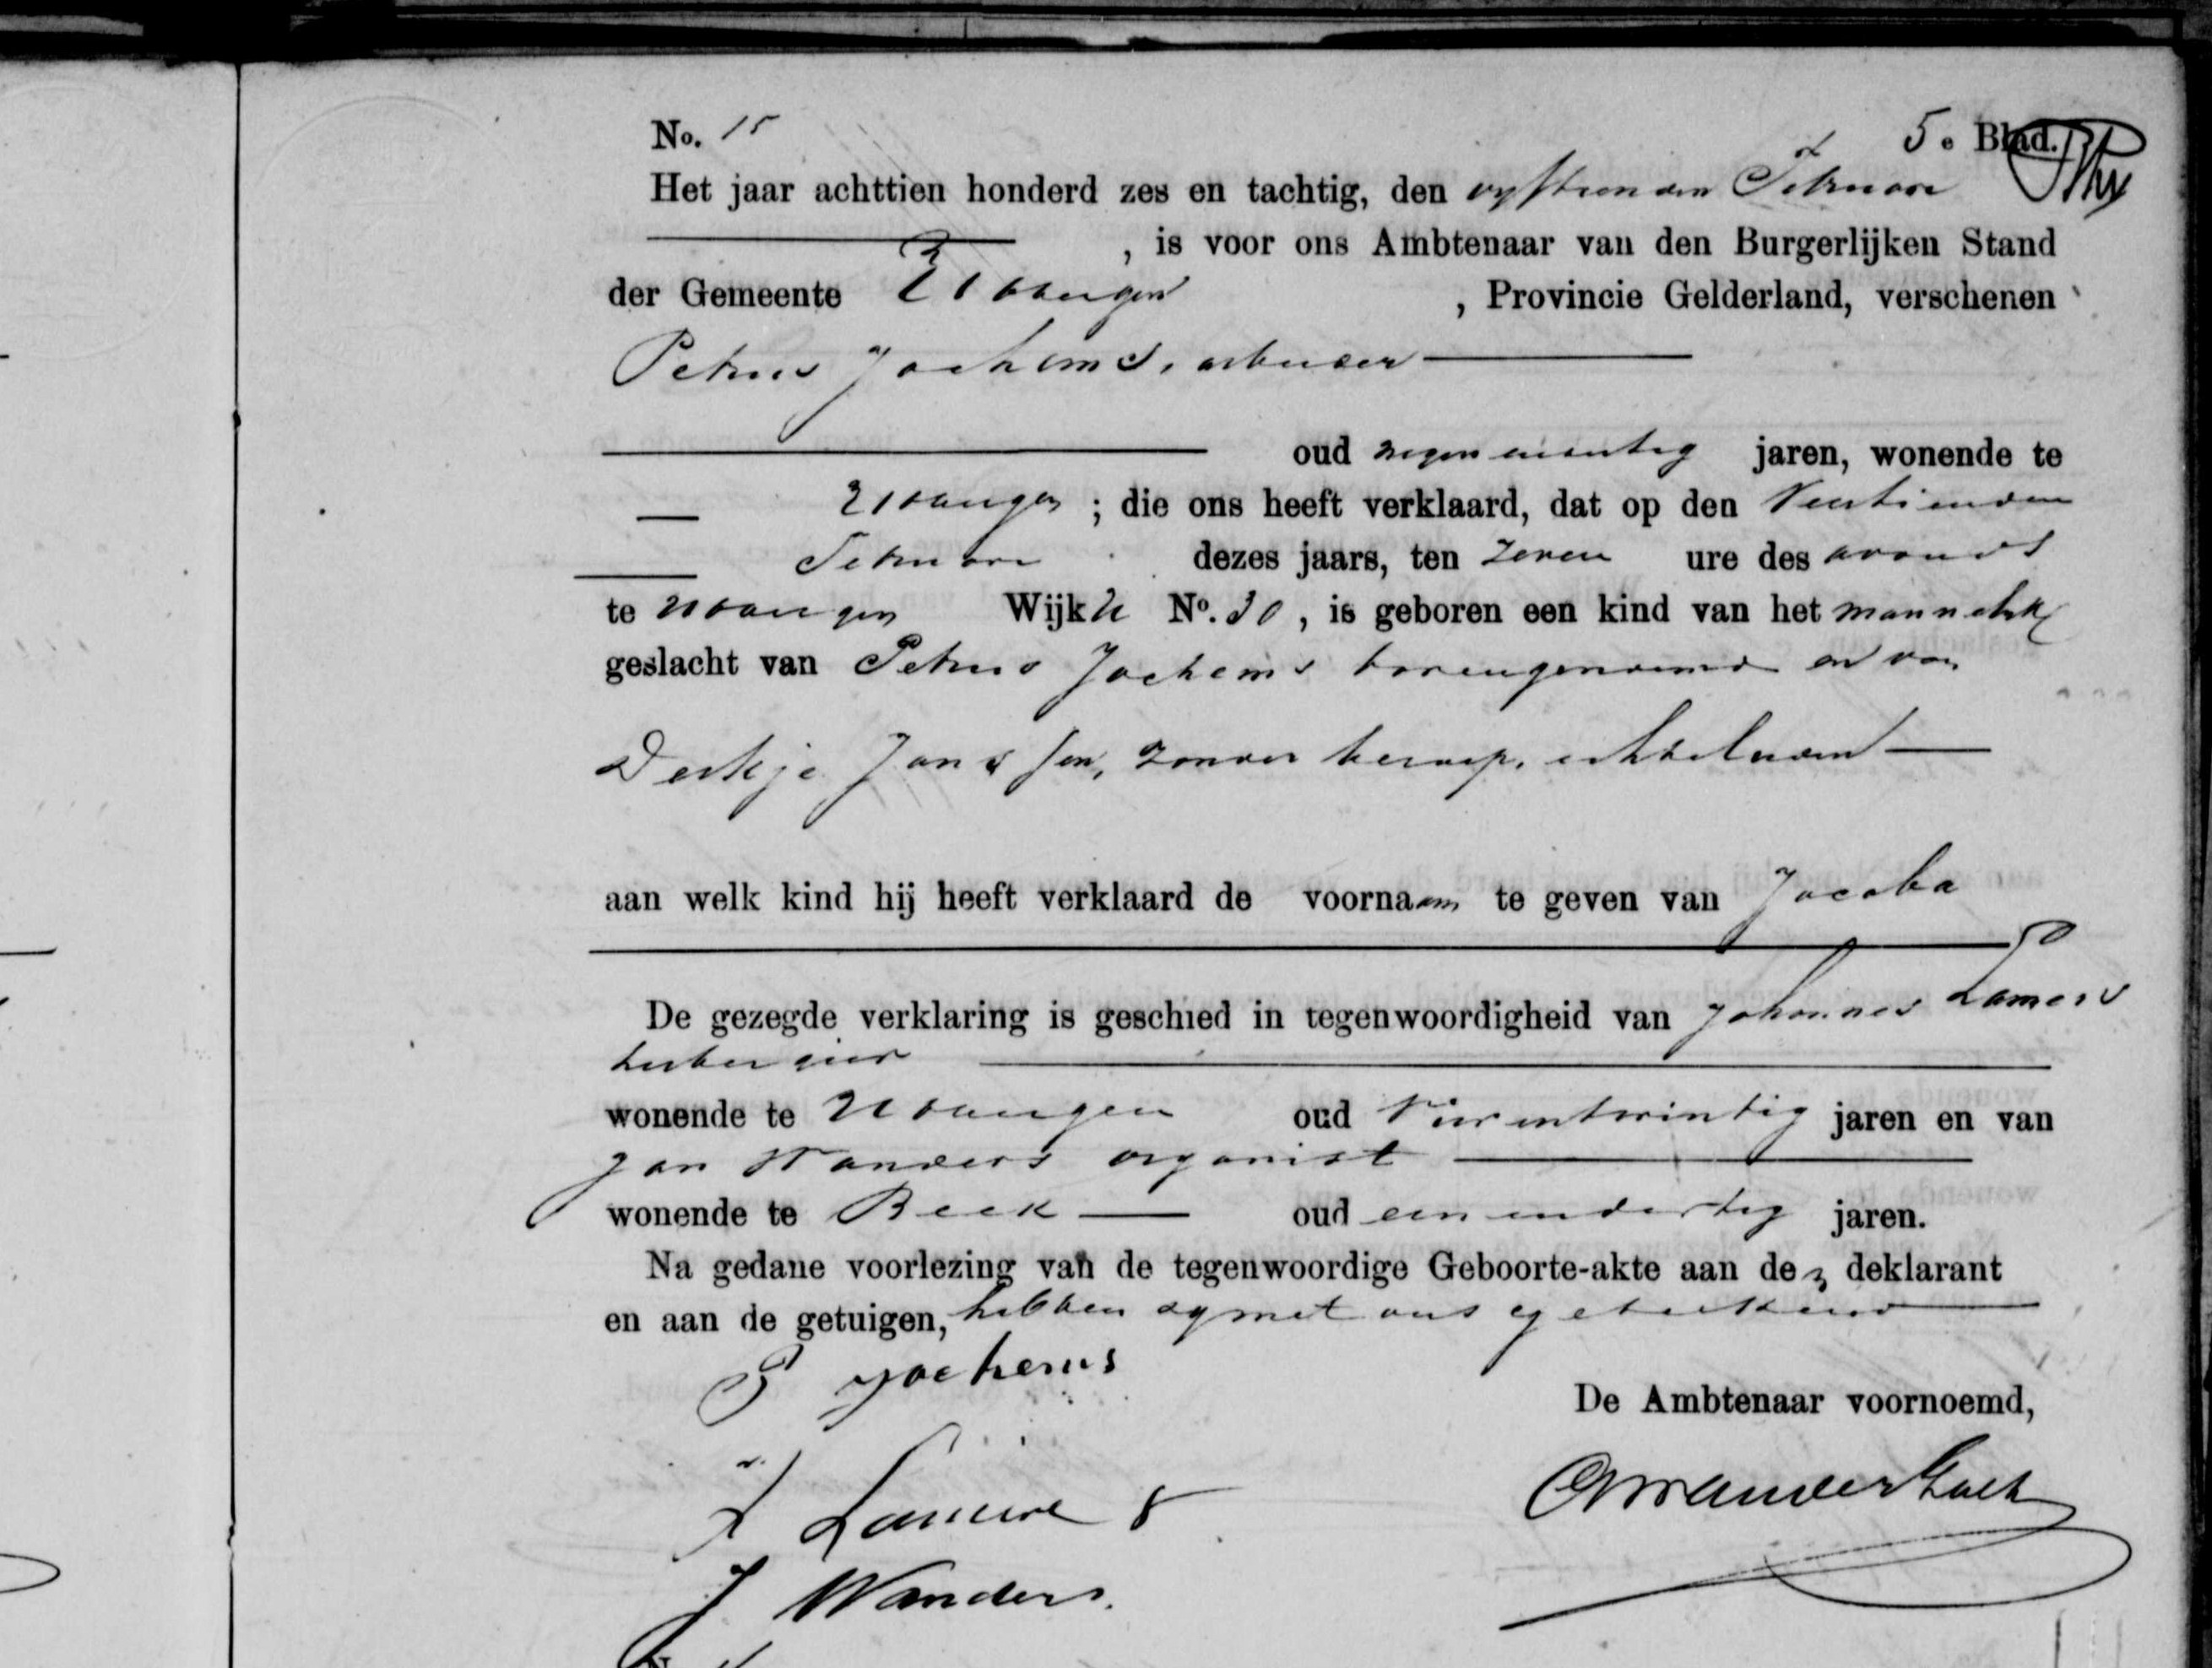 No. 15
5e Blad.
Het jaar achttien honderd zes en tachtig, den vyftienden Februari
, is voor ons Ambtenaar van den Burgerlijken Stand
der Gemeente Ubbergen , Provincie Gelderland, verschenen
Petrus Jochems, arbeider
oud negenentwintig jaren, wonende te
Ubbergen ; die ons heeft verklaard, dat op den Veertienden
Februari dezes jaars, ten zeven ure des avonds
te Ubbergen Wijk U No. 30 , is geboren een kind van het mannelijk
geslacht van Petrus Jochems bovengenoemd en van
Derkje Janssen, zonder beroep, echtelieden
aan welk kind hij heeft verklaard de voornaam te geven van Jacoba
De gezegde verklaring is geschied in tegenwoordigheid van Johannes Lamers
herbergier
wonende te Ubbergen oud Vierentwintig jaren en van
Jan Wanders organist
wonende te Beek oud eenendertig jaren.
Na gedane voorlezing van de tegenwoordige Geboorte-akte aan den deklarant
en aan de getuigen, hebben zy met ons geteekend
P Jochems
De Ambtenaar voornoemd,
Lamers
J Wanders.